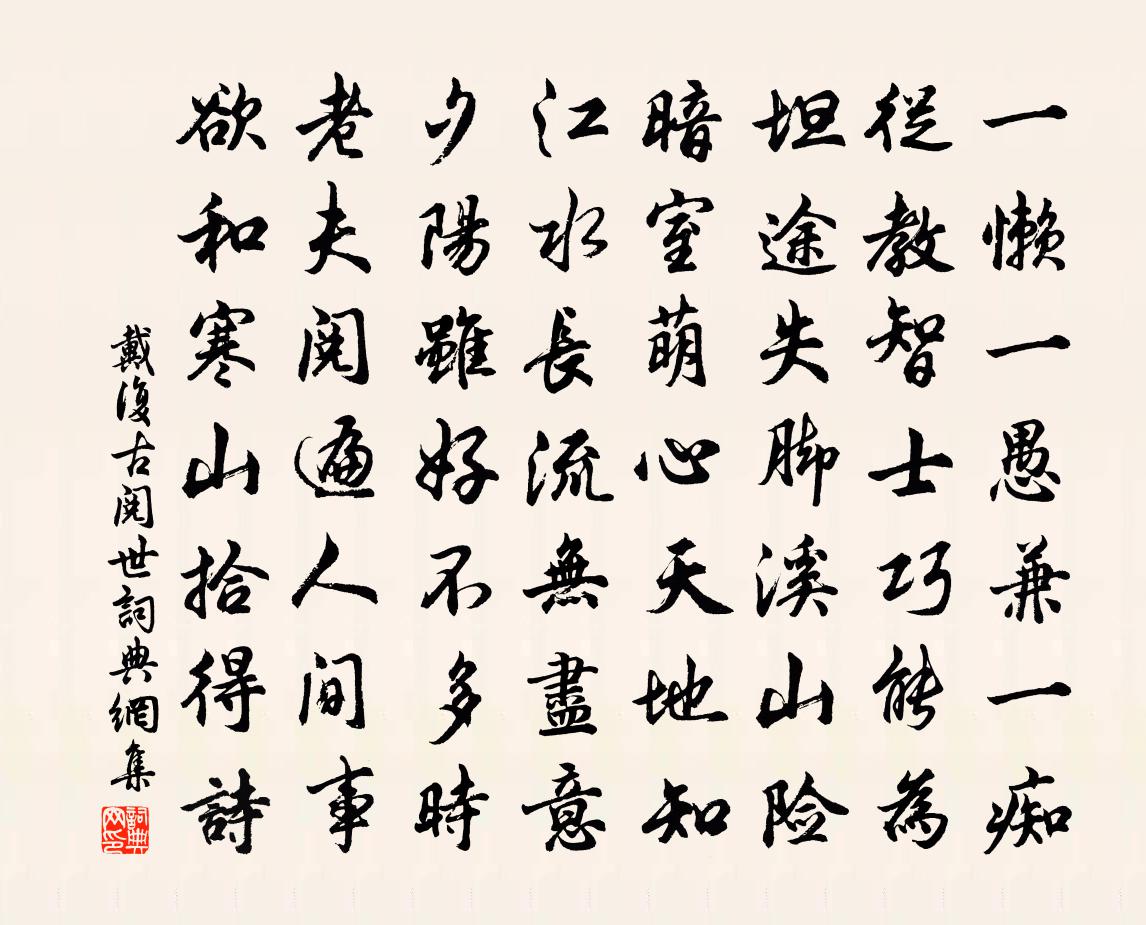 一懶一愚兼一痴
從教智士巧能為
坦途失脚溪山险
暗室萌心天地知
江水長流無盡意
夕陽雖好不多時
老夫閱遍人间事
欲和寒山拾得詩
戴復古閱世詞典網集
詞典网印